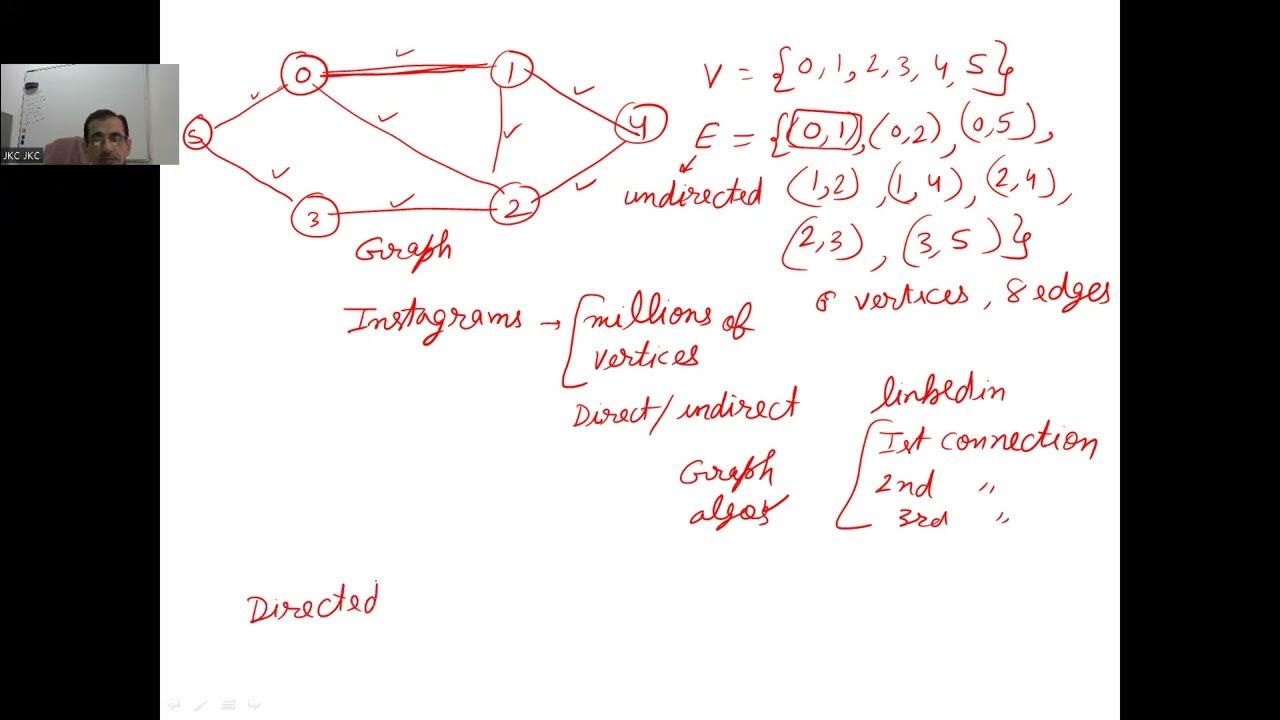 JKC JKC
0
1
5
4
3
2
Graph
V = {0, 1, 2, 3, 4, 5}
E = {(0, 1), (0, 2), (0, 5),
undirected (1, 2), (1, 4), (2, 4),
(2, 3), (3, 5)}
6 vertices, 8 edges
Instagrams → [millions of
vertices
Direct/indirect
linkedin
Graph
algos
[Ist connection
2nd "
3rd "
Directed